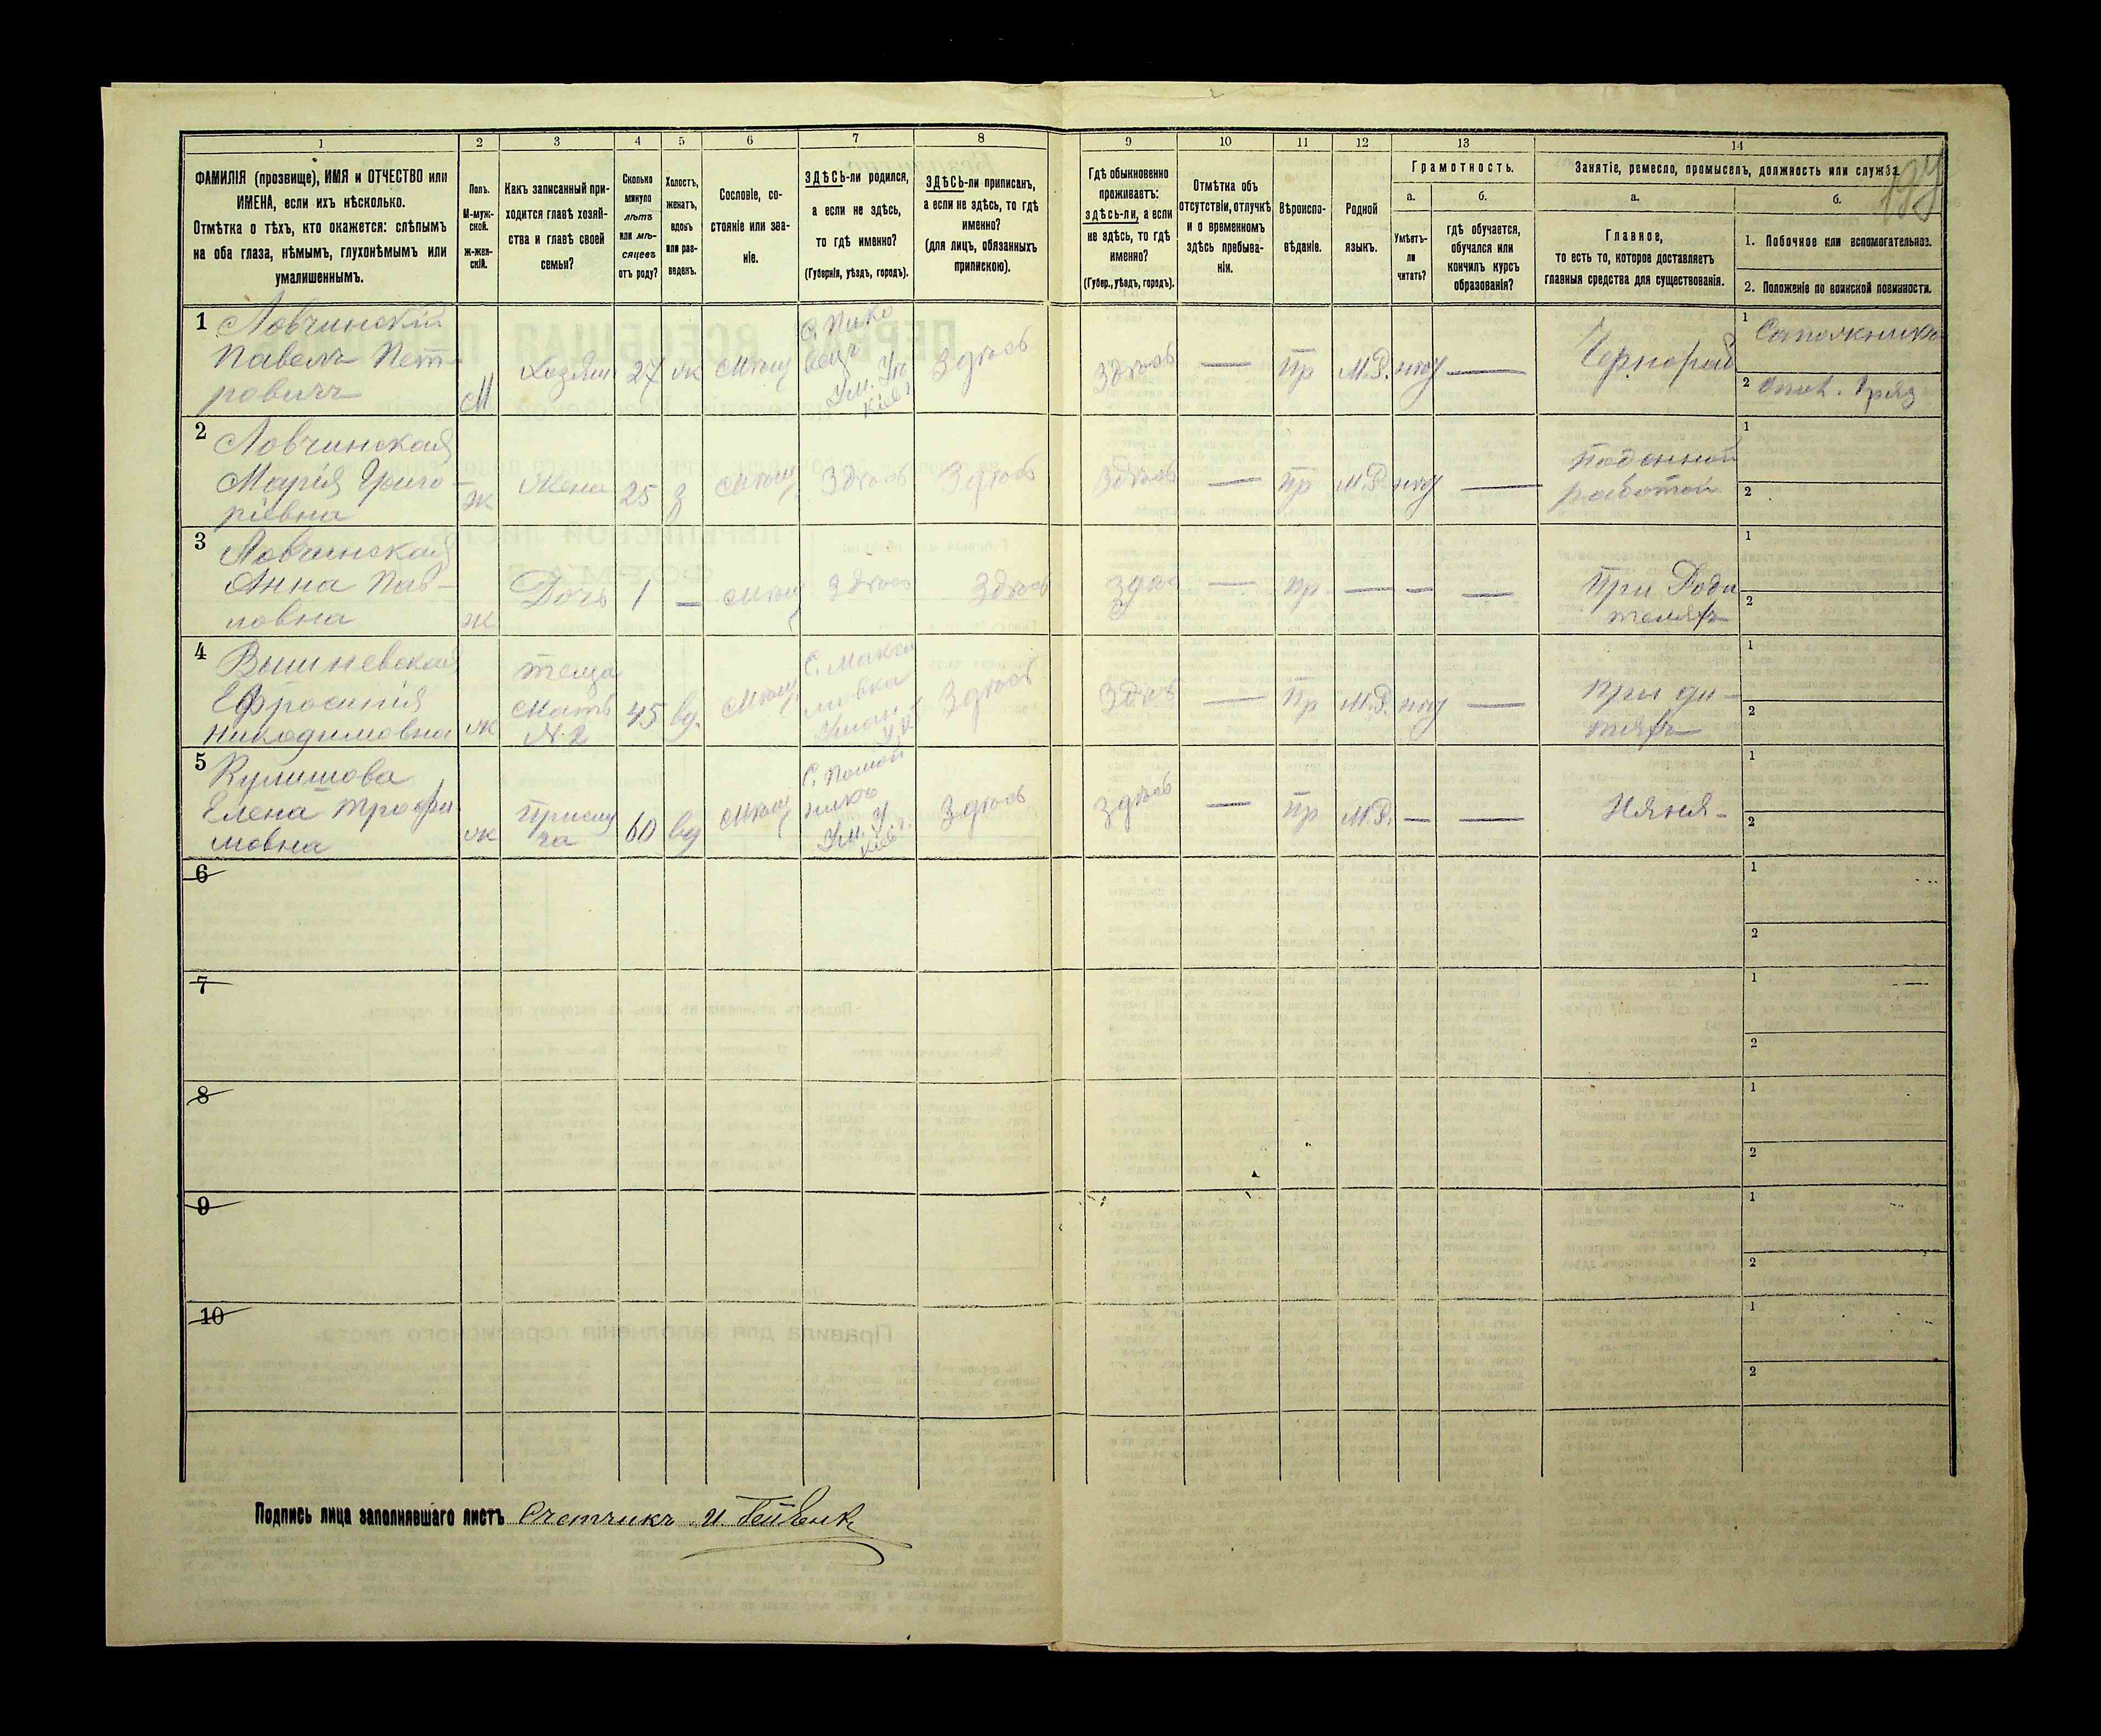 1
2
3
4
5
6
7
8
9
10
11
12
13
14
ФАМИЛІЯ (прозвище), ИМЯ и ОТЧЕСТВО или
ИМЕНА, если ихъ нѣсколько.
Отмѣтка о тѣхъ, кто окажется: слѣпымъ
на оба глаза, нѣмымъ, глухонѣмымъ или
умалишеннымъ.
Полъ.
М-муж-
ской.
Ж-жен-
скій.
Какъ записанный при-
ходится главѣ хозяй-
ства и главѣ своей
семьи?
Сколько
минуло
лѣтъ
или мѣ-
сяцевъ
отъ роду?
Холостъ,
женатъ,
вдовъ
или раз-
веденъ.
Сословіе, со-
стояніе или зва-
ніе.
ЗДѢСЬ-ли родился,
а если не здѣсь,
то гдѣ именно?
(Губернія, уѣздъ, городъ).
ЗДѢСЬ-ли приписанъ,
а если не здѣсь, то гдѣ
именно?
(для лицъ, обязанныхъ
припискою).
Гдѣ обыкновенно
проживаетъ:
здѣсь-ли, а если
не здѣсь, то гдѣ
именно?
(Губер., уѣздъ, городъ).
Отмѣтка объ
отсутствіи, отлучкѣ
и о временномъ
здѣсь пребыва-
ніи.
Вѣроиспо-
вѣданіе.
Родной
языкъ.
Грамотность.
а.
б.
Умѣетъ-
ли
читать?
гдѣ обучается,
обучался или
кончилъ курсъ
образованія?
Занятіе, ремесло, промыселъ, должность или служба.
а.
б.
Главное,
то есть то, которое доставляетъ
главныя средства для существованія.
1. Побочное или вспомогательное.
2. Положеніе по воинской повинности.
1
Ловчинскій
Павелъ Пет-
ровичъ
М
Хозяин
27
ж
Мѣщ
Ум.
Здѣсь
Здѣсь
—
Пр
М.Р.
—
Чернораб
1
Сапожникъ
2
2
Ловчинская
Марія Григо-
ріевна
Ж
Жена
25
з
Мѣщ
Здѣсь
Здѣсь
Здѣсь
—
Пр
М.Р.
—
поденной
работой
1
2
3
Ловчинская
Анна Пав-
ловна
Ж
Дочь
1
—
Мѣщ
Здѣсь
Здѣсь
Здѣс
—
Пр
—
—
—
При Роди
теляхъ
1
2
4
Вишневская
Ефросинія
Никодимовна
Ж
теща
Мать
№ 2
45
вд.
Мѣщ
С. Макси
мовка
Уман
Здѣсь
Здѣсь
—
Пр
М.Р.
—
при дѣ-
тяхъ
1
2
5
Кулишова
Елена Трофи
мовна
Ж
Прислу
га
60
вд
Мѣщ
Ум. У
Здѣсь
Здѣсь
—
Пр
М.Р.
—
—
Няня-
1
2
6
1
2
7
1
2
8
1
2
9
1
2
10
1
2
Подпись лица заполнявшаго листъ Счетчикъ И.